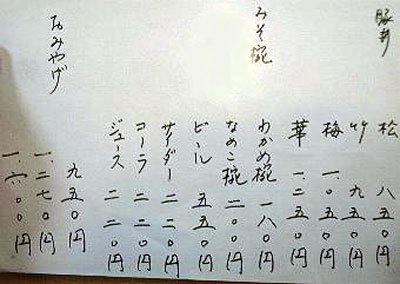 豚丼
松 八五〇円
竹 九五〇円
梅 一、〇五〇円
華 一、二五〇円
みそ椀
わかめ椀 一八〇円
なめこ椀 二〇〇円
ビール 五五〇円
サイダー 二二〇円
コーラ 二二〇円
ジュース 二二〇円
おみやげ
九五〇円
一、二七〇円
一、六〇〇円